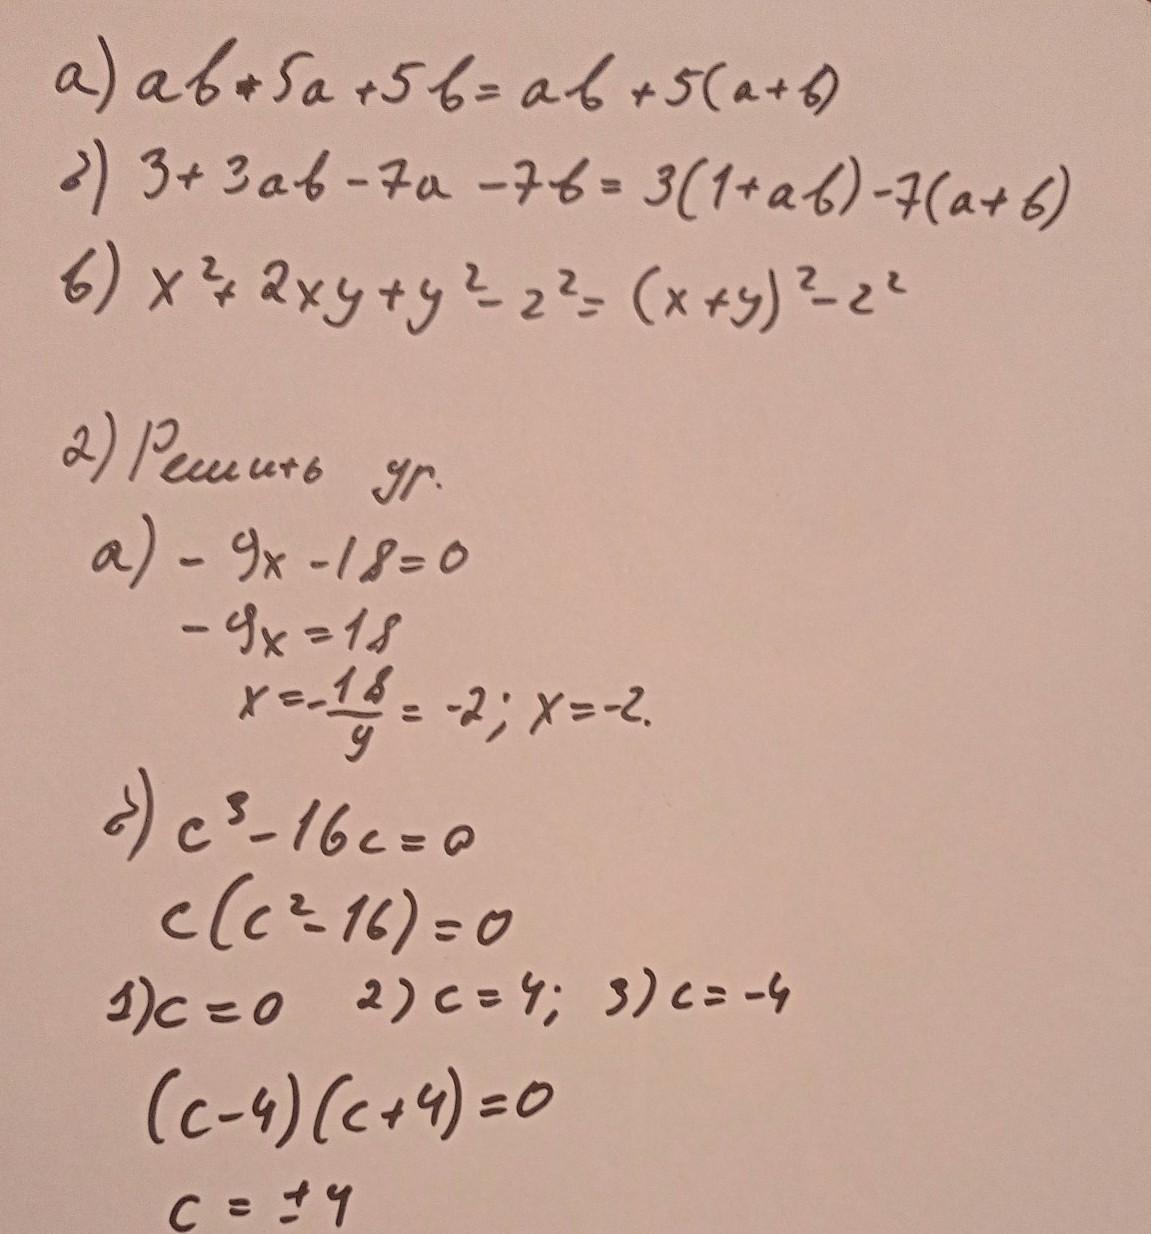 а) ab + 5a + 5b = ab + 5(a+b)
б) 3 + 3ab - 7a - 7b = 3(1+ab) - 7(a+b)
в) x² + 2xy + y² - z² = (x+y)² - z²
2) Решить ур.
а) - 9x - 18 = 0
- 9x = 18
x = - 18/9 = -2; x = -2.
б) c³ - 16c = 0
c(c² - 16) = 0
1) c = 0 2) c = 4; 3) c = -4
(c-4)(c+4) = 0
c = ± 4